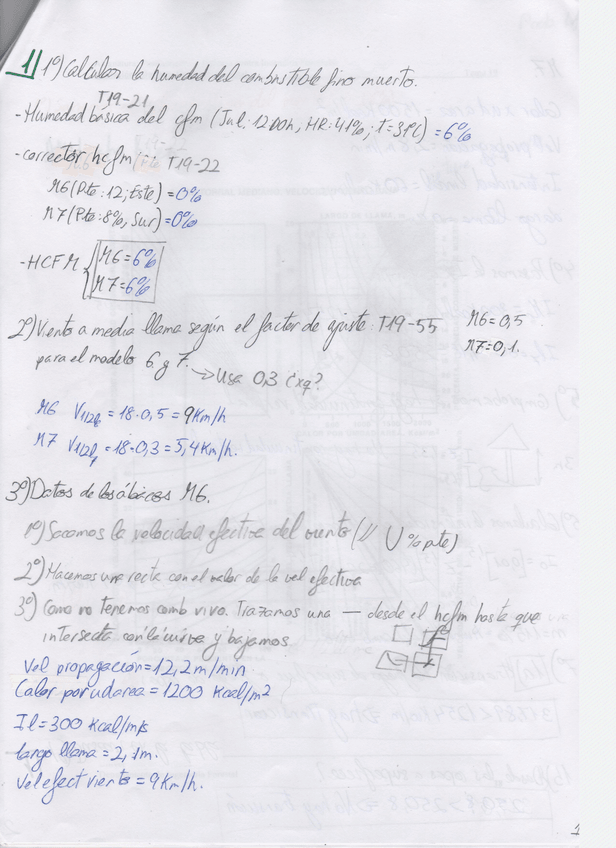 1) 1º) Calcular la humedad del combustible fino muerto.
T19-21
- Humedad básica del cfm (Jul: 12:00h, HR: 41%, t=31ºC) = 6%
- corrector hcfm T19-22
M6 (Pte: 12; Este) = 0%
M7 (Pte: 8%, Sur) = 0%
- HCFM { M6 = 6%
M7 = 6%
2º) Viento a media llama según el factor de ajuste: T19-55 M6 = 0,5
para el modelo 6 y 7. M7 = 0,1.
→ Usa 0,3 ¿xq?
M6 V1/2ll = 18·0,5 = 9 Km/h
M7 V1/2ll = 18·0,3 = 5,4 Km/h.
3º) Datos de los ábacos M6.
1º) Sacamos la velocidad efectiva del viento (// U % pte)
2º) Hacemos una recta con el valor de la vel efectiva
3º) Como no tenemos comb vivo. Trazamos una — desde el hcfm hasta que
intersecta con la curva y bajamos.
Vel propagación = 12,2 m/min
Calor por ud area = 1200 Kcal/m²
Il = 300 Kcal/m/s
largo llama = 2,1m.
Vel efect viento = 9 Km/h.
1